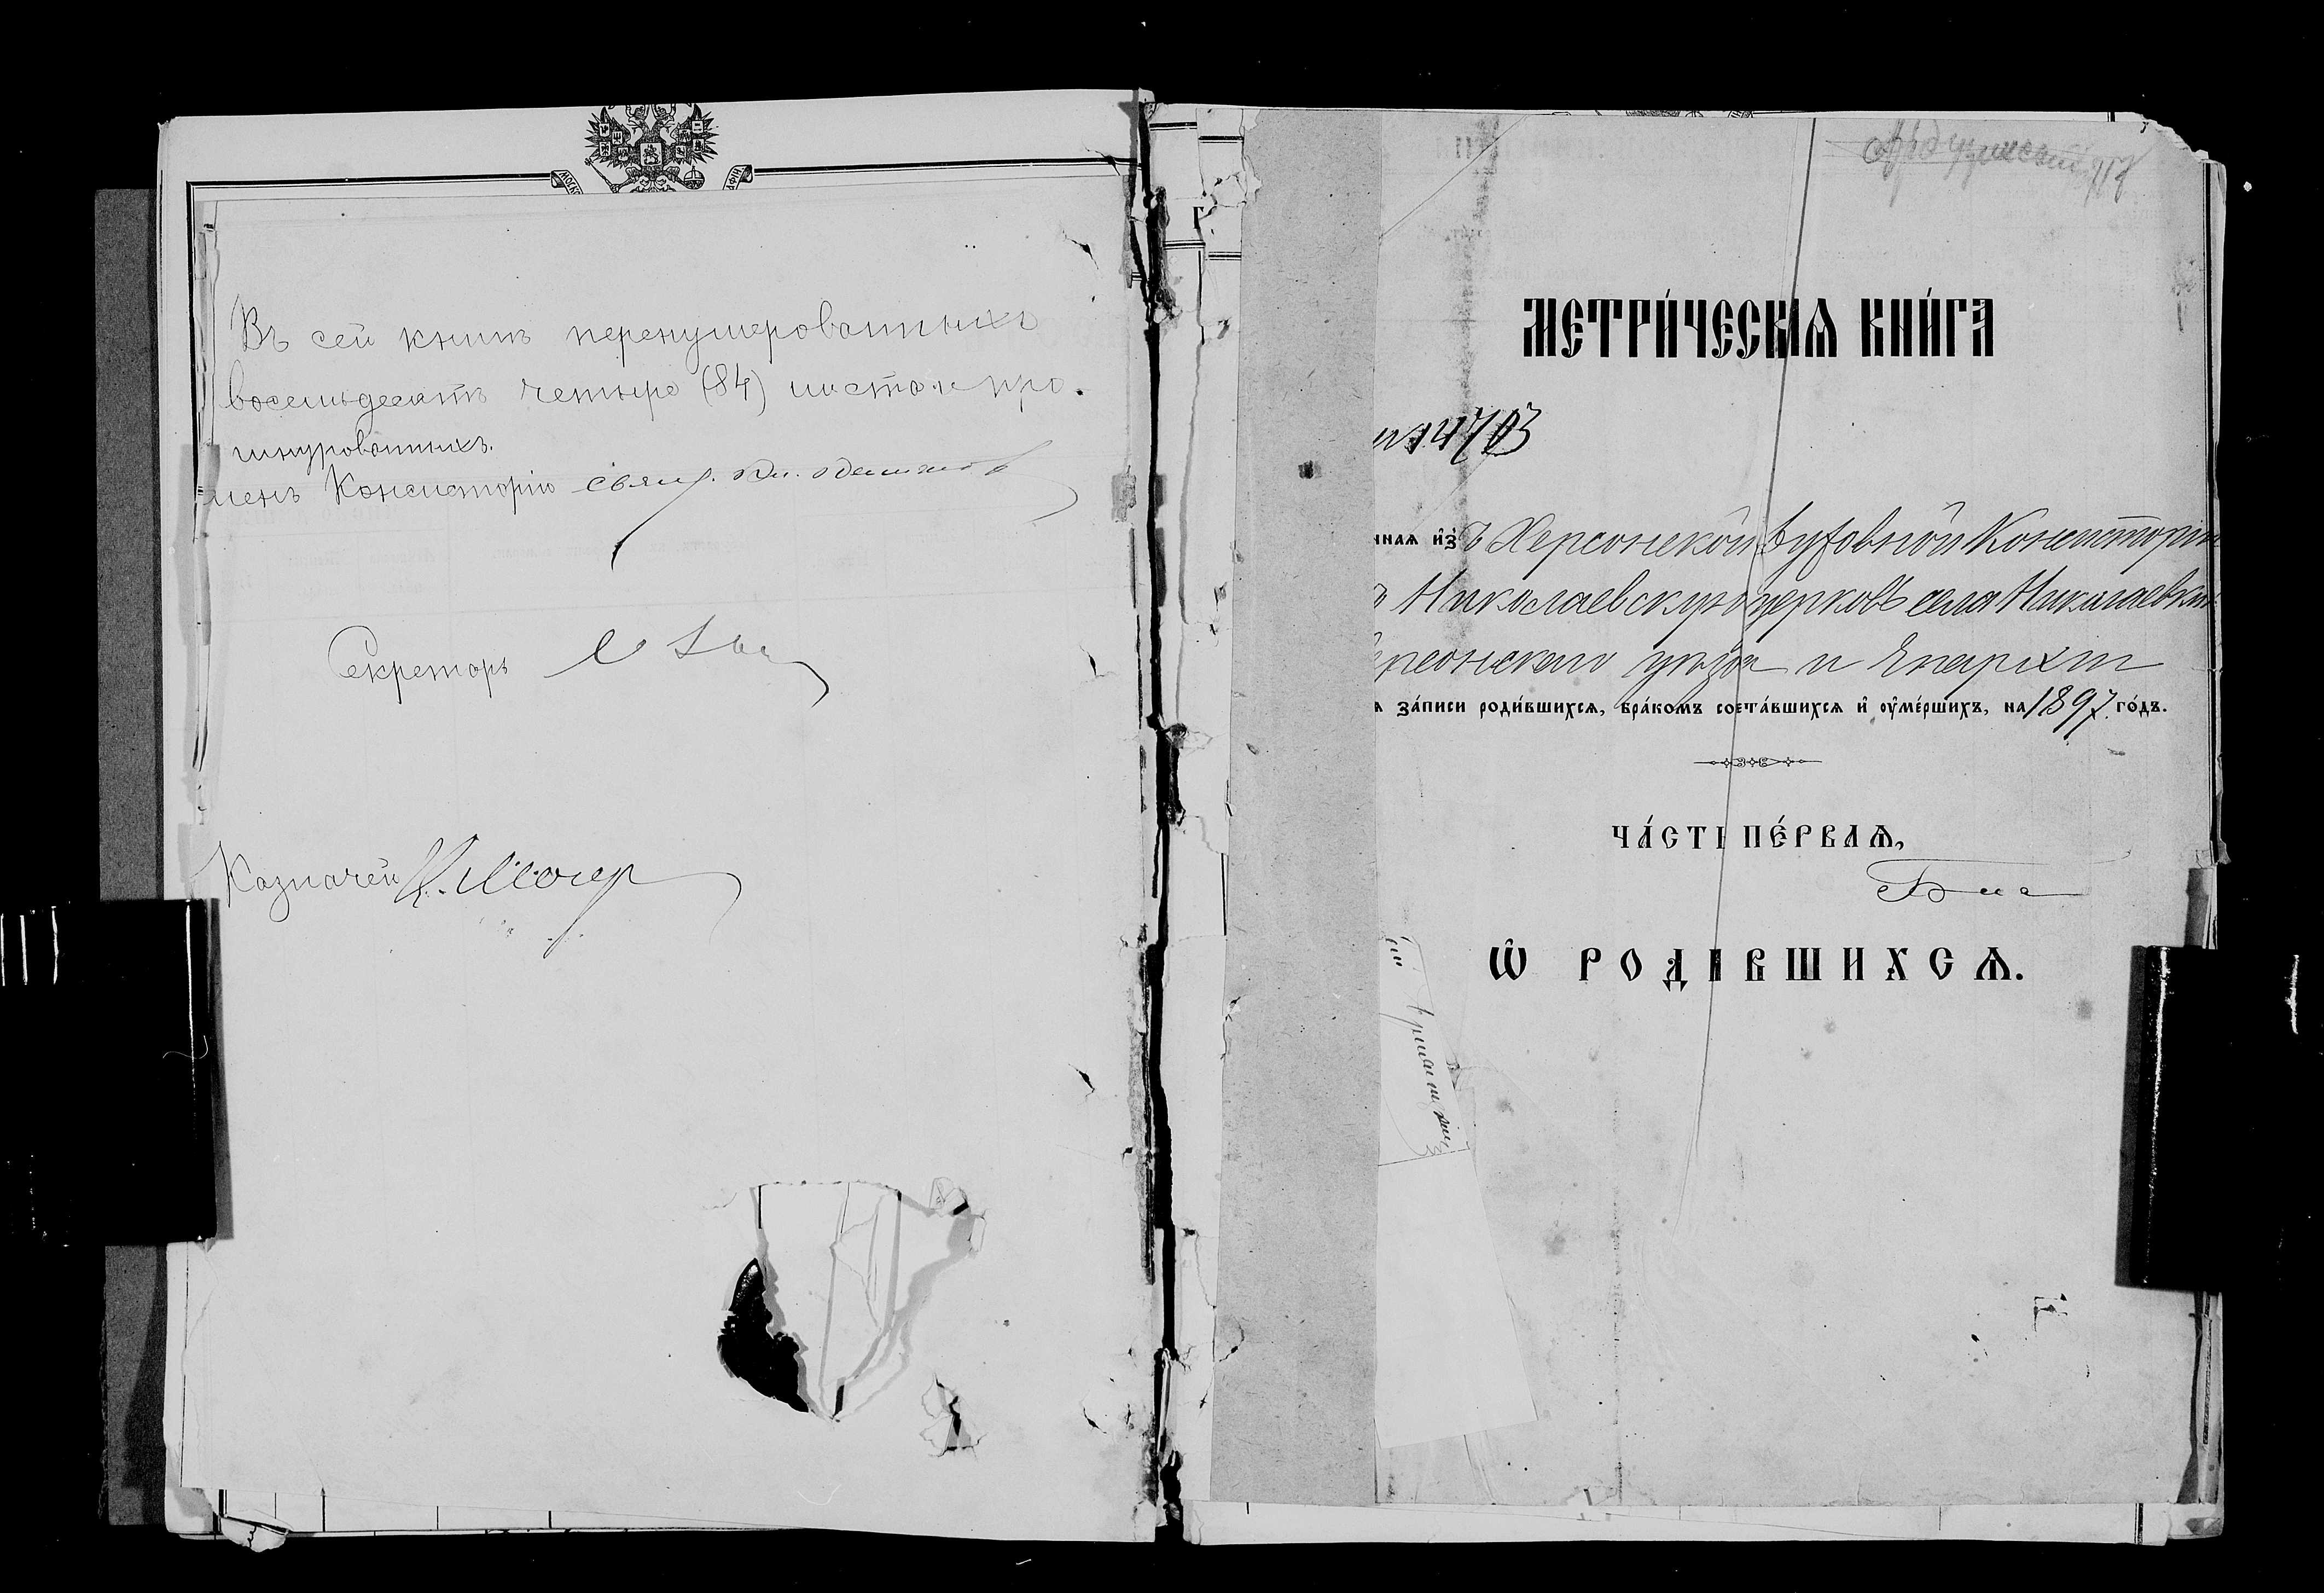 Въ сей книгѣ перенумерованныхъ
восемьдесятъ четыре (84) листа и про-
шнурованныхъ.
Членъ Консисторіи Свящ.
Секретарь
Казначей
МЕТРИ́ЧЕСКІѦ КНИ́ГА
4703
ннаѧ и҆зъ Херсонской Духовной Консисторіи
въ Николаевскую церковь села Николаевки
ерсонскаго уѣзда и Епархіи
ѧ за́писи роди́вшихсѧ, бра́комъ соста́вшихсѧ и҆ оу҆ме́ршихъ, на 1897 го́дъ.
ЧА́СТЬ ПЕ́РВАѦ,
Ѡ҆ РОДИ́ВШИХСѦ.